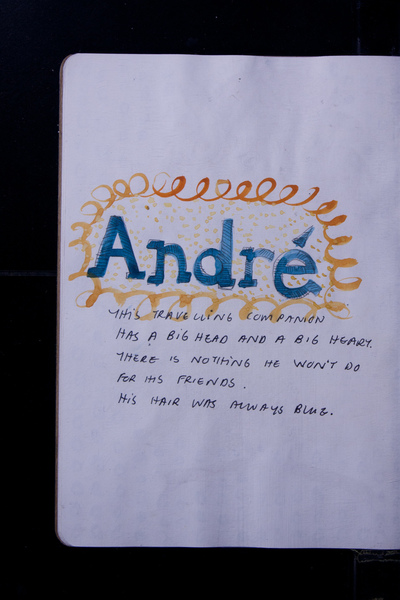 André
THIS TRAVELLING COMPANION
HAS A BIG HEAD AND A BIG HEART.
THERE IS NOTHING HE WON'T DO
FOR HIS FRIENDS.
HIS HAIR WAS ALWAYS BLUE.